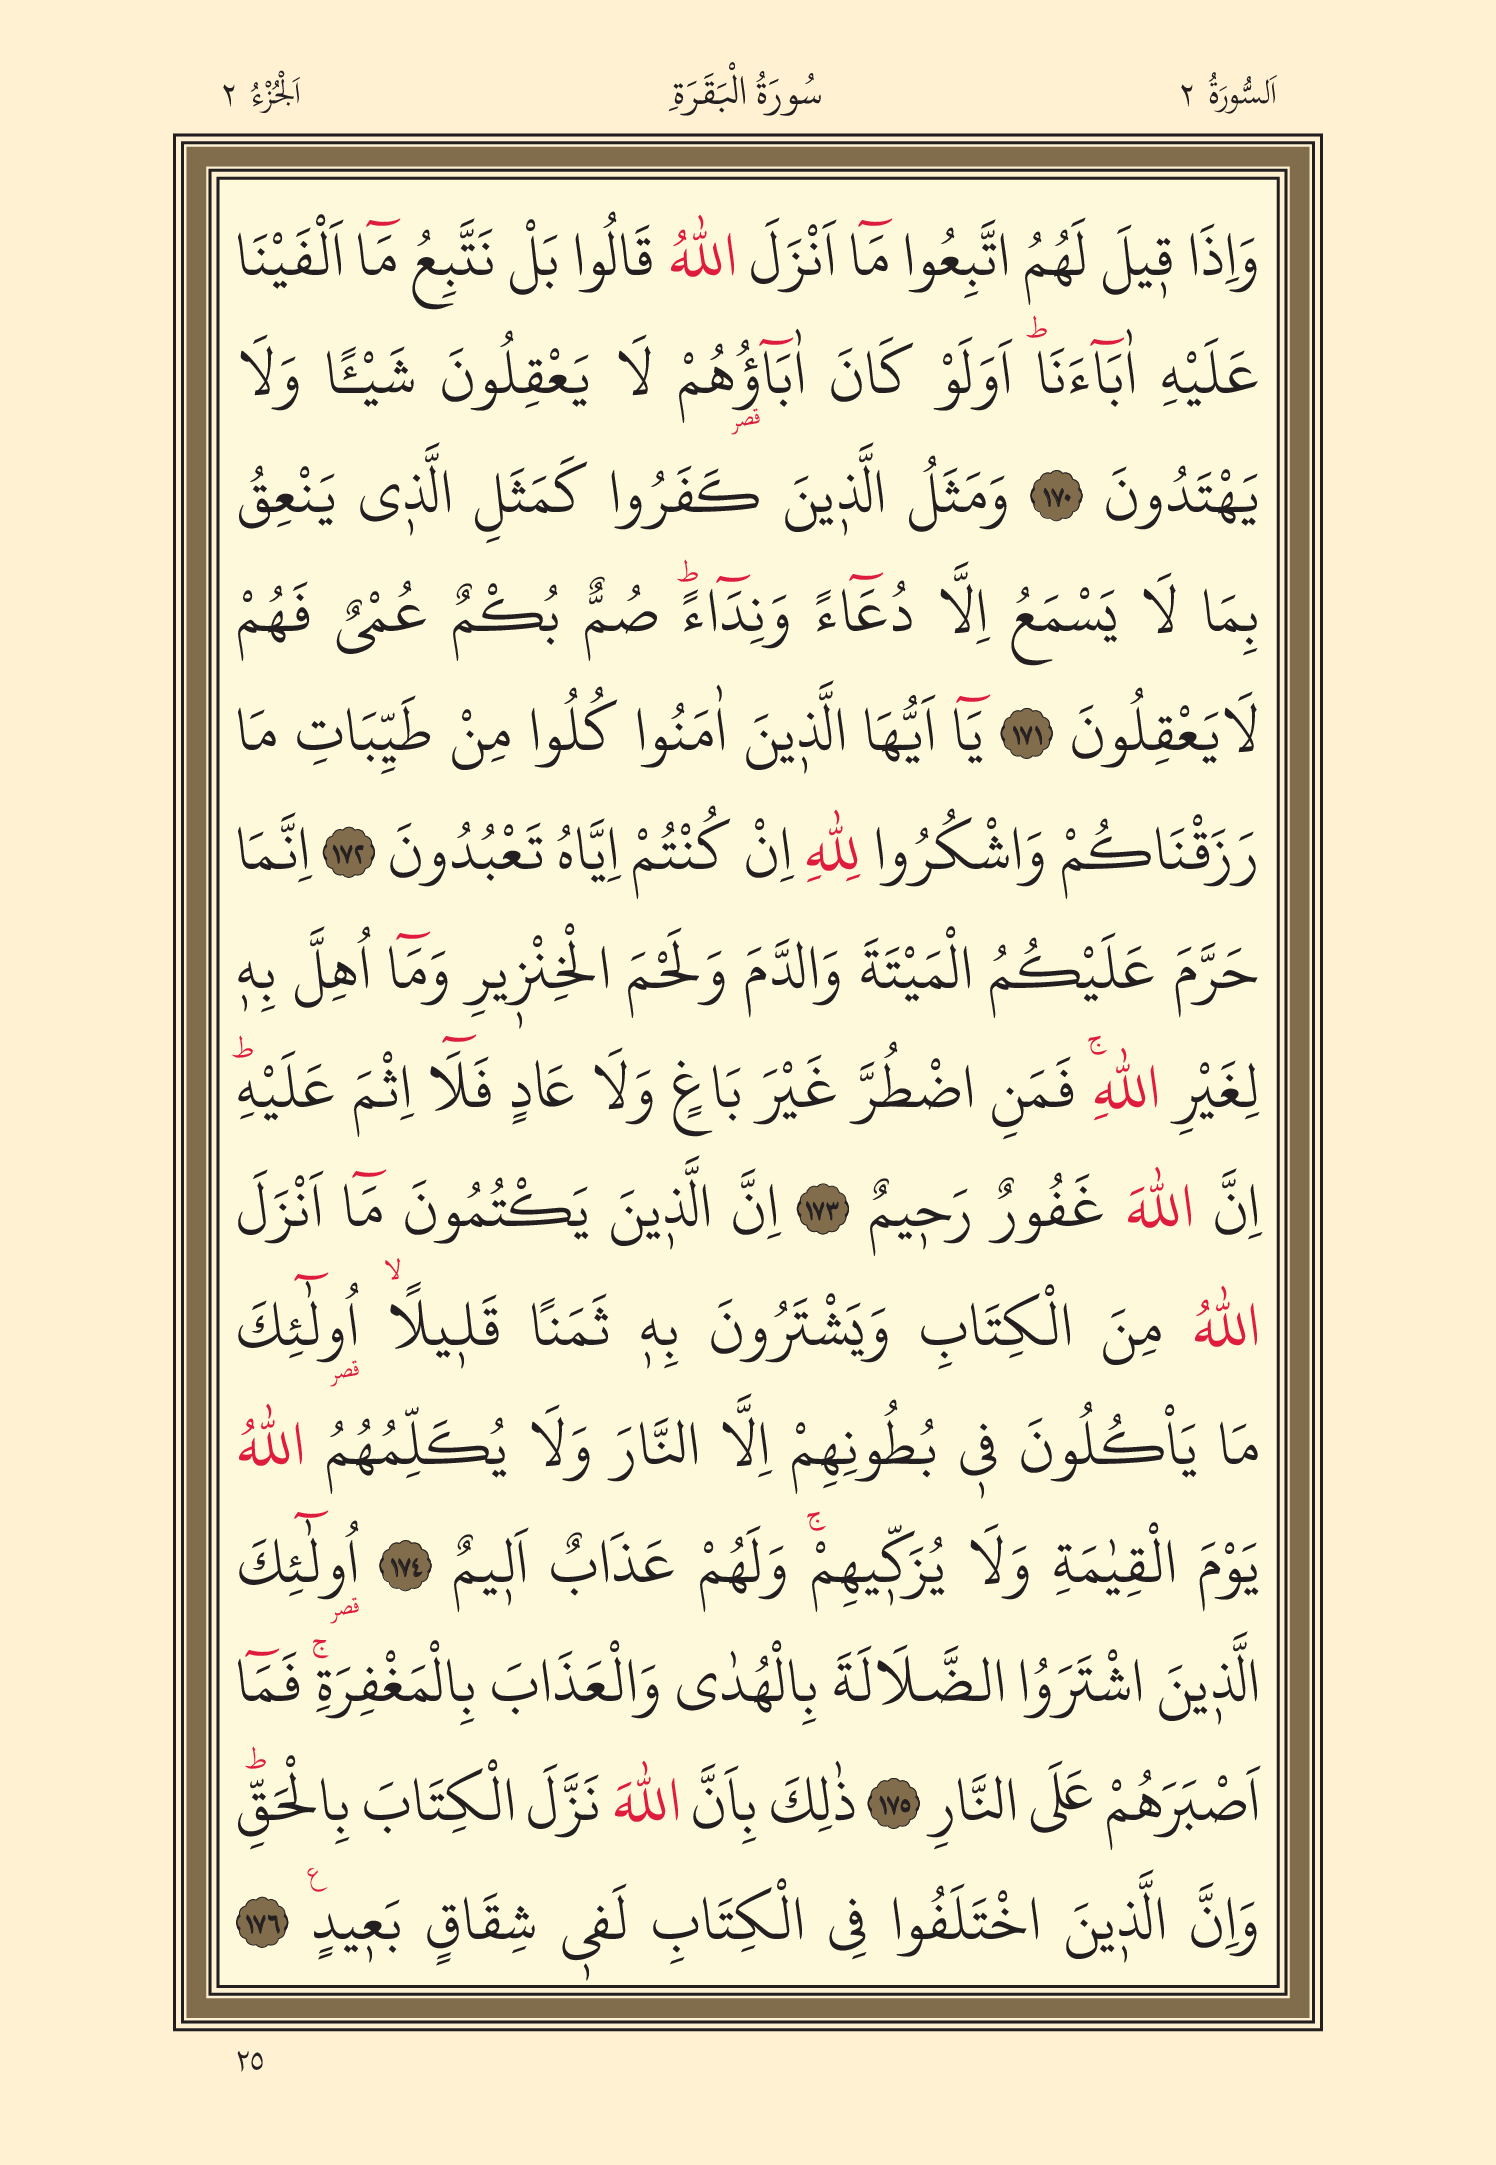 اَلسُّورَةُ ٢ سُورَةُ الْبَقَرَةِ اَلْجُزْءُ ٢
وَاِذَا قٖيلَ لَهُمُ اتَّبِعُوا مَٓا اَنْزَلَ اللّٰهُ قَالُوا بَلْ نَتَّبِعُ مَٓا اَلْفَيْنَا
عَلَيْهِ اٰبَٓاءَنَاؕ اَوَلَوْ كَانَ اٰبَٓاؤُ۬هُمْ لَا يَعْقِلُونَ شَيْـًٔا وَلَا
قصر
يَهْتَدُونَ ١٧٠ وَمَثَلُ الَّذٖينَ كَفَرُوا كَمَثَلِ الَّذٖى يَنْعِقُ
بِمَا لَا يَسْمَعُ اِلَّا دُعَٓاءً وَنِدَٓاءًؕ صُمٌّ بُكْمٌ عُمْىٌ فَهُمْ
لَا يَعْقِلُونَ ١٧١ يَٓا اَيُّهَا الَّذٖينَ اٰمَنُوا كُلُوا مِنْ طَيِّبَاتِ مَا
رَزَقْنَاكُمْ وَاشْكُرُوا لِلّٰهِ اِنْ كُنْتُمْ اِيَّاهُ تَعْبُدُونَ ١٧٢ اِنَّمَا
حَرَّمَ عَلَيْكُمُ الْمَيْتَةَ وَالدَّمَ وَلَحْمَ الْخِنْزٖيرِ وَمَٓا اُهِلَّ بِهٖ
لِغَيْرِ اللّٰهِۚ فَمَنِ اضْطُرَّ غَيْرَ بَاغٍ وَلَا عَادٍ فَلَٓا اِثْمَ عَلَيْهِؕ
اِنَّ اللّٰهَ غَفُورٌ رَحٖيمٌ ١٧٣ اِنَّ الَّذٖينَ يَكْتُمُونَ مَٓا اَنْزَلَ
اللّٰهُ مِنَ الْكِتَابِ وَيَشْتَرُونَ بِهٖ ثَمَنًا قَلٖيلًاۙ اُولٰٓئِكَ
قصر
مَا يَاْكُلُونَ فٖى بُطُونِهِمْ اِلَّا النَّارَ وَلَا يُكَلِّمُهُمُ اللّٰهُ
يَوْمَ الْقِيٰمَةِ وَلَا يُزَكّٖيهِمْۚ وَلَهُمْ عَذَابٌ اَلٖيمٌ ١٧٤ اُولٰٓئِكَ
قصر
الَّذٖينَ اشْتَرَوُا الضَّلَالَةَ بِالْهُدٰى وَالْعَذَابَ بِالْمَغْفِرَةِۚ فَمَٓا
اَصْبَرَهُمْ عَلَى النَّارِ ١٧٥ ذٰلِكَ بِاَنَّ اللّٰهَ نَزَّلَ الْكِتَابَ بِالْحَقِّؕ
وَاِنَّ الَّذٖينَ اخْتَلَفُوا فِى الْكِتَابِ لَفٖى شِقَاقٍ بَعٖيدٍ ع ١٧٦
٢٥